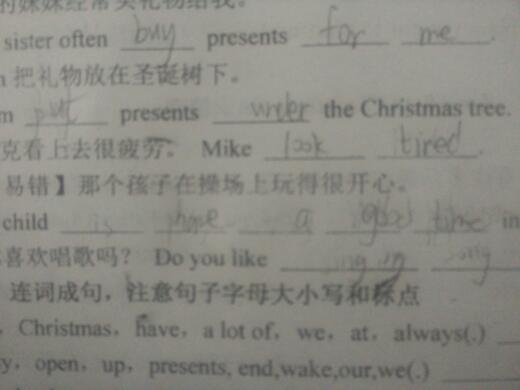 的妹妹经常买礼物给我。
sister often buy presents for me .
把礼物放在圣诞树下。
m put presents under the Christmas tree.
克看上去很疲劳。 Mike look tired.
易错】那个孩子在操场上玩得很开心。
child is hope a good time in
喜欢唱歌吗? Do you like singing song
连词成句,注意句子字母大小写和标点
, Christmas, have, a lot of, we, at, always(.)
y, open, up, presents, end,wake,our,we(.)